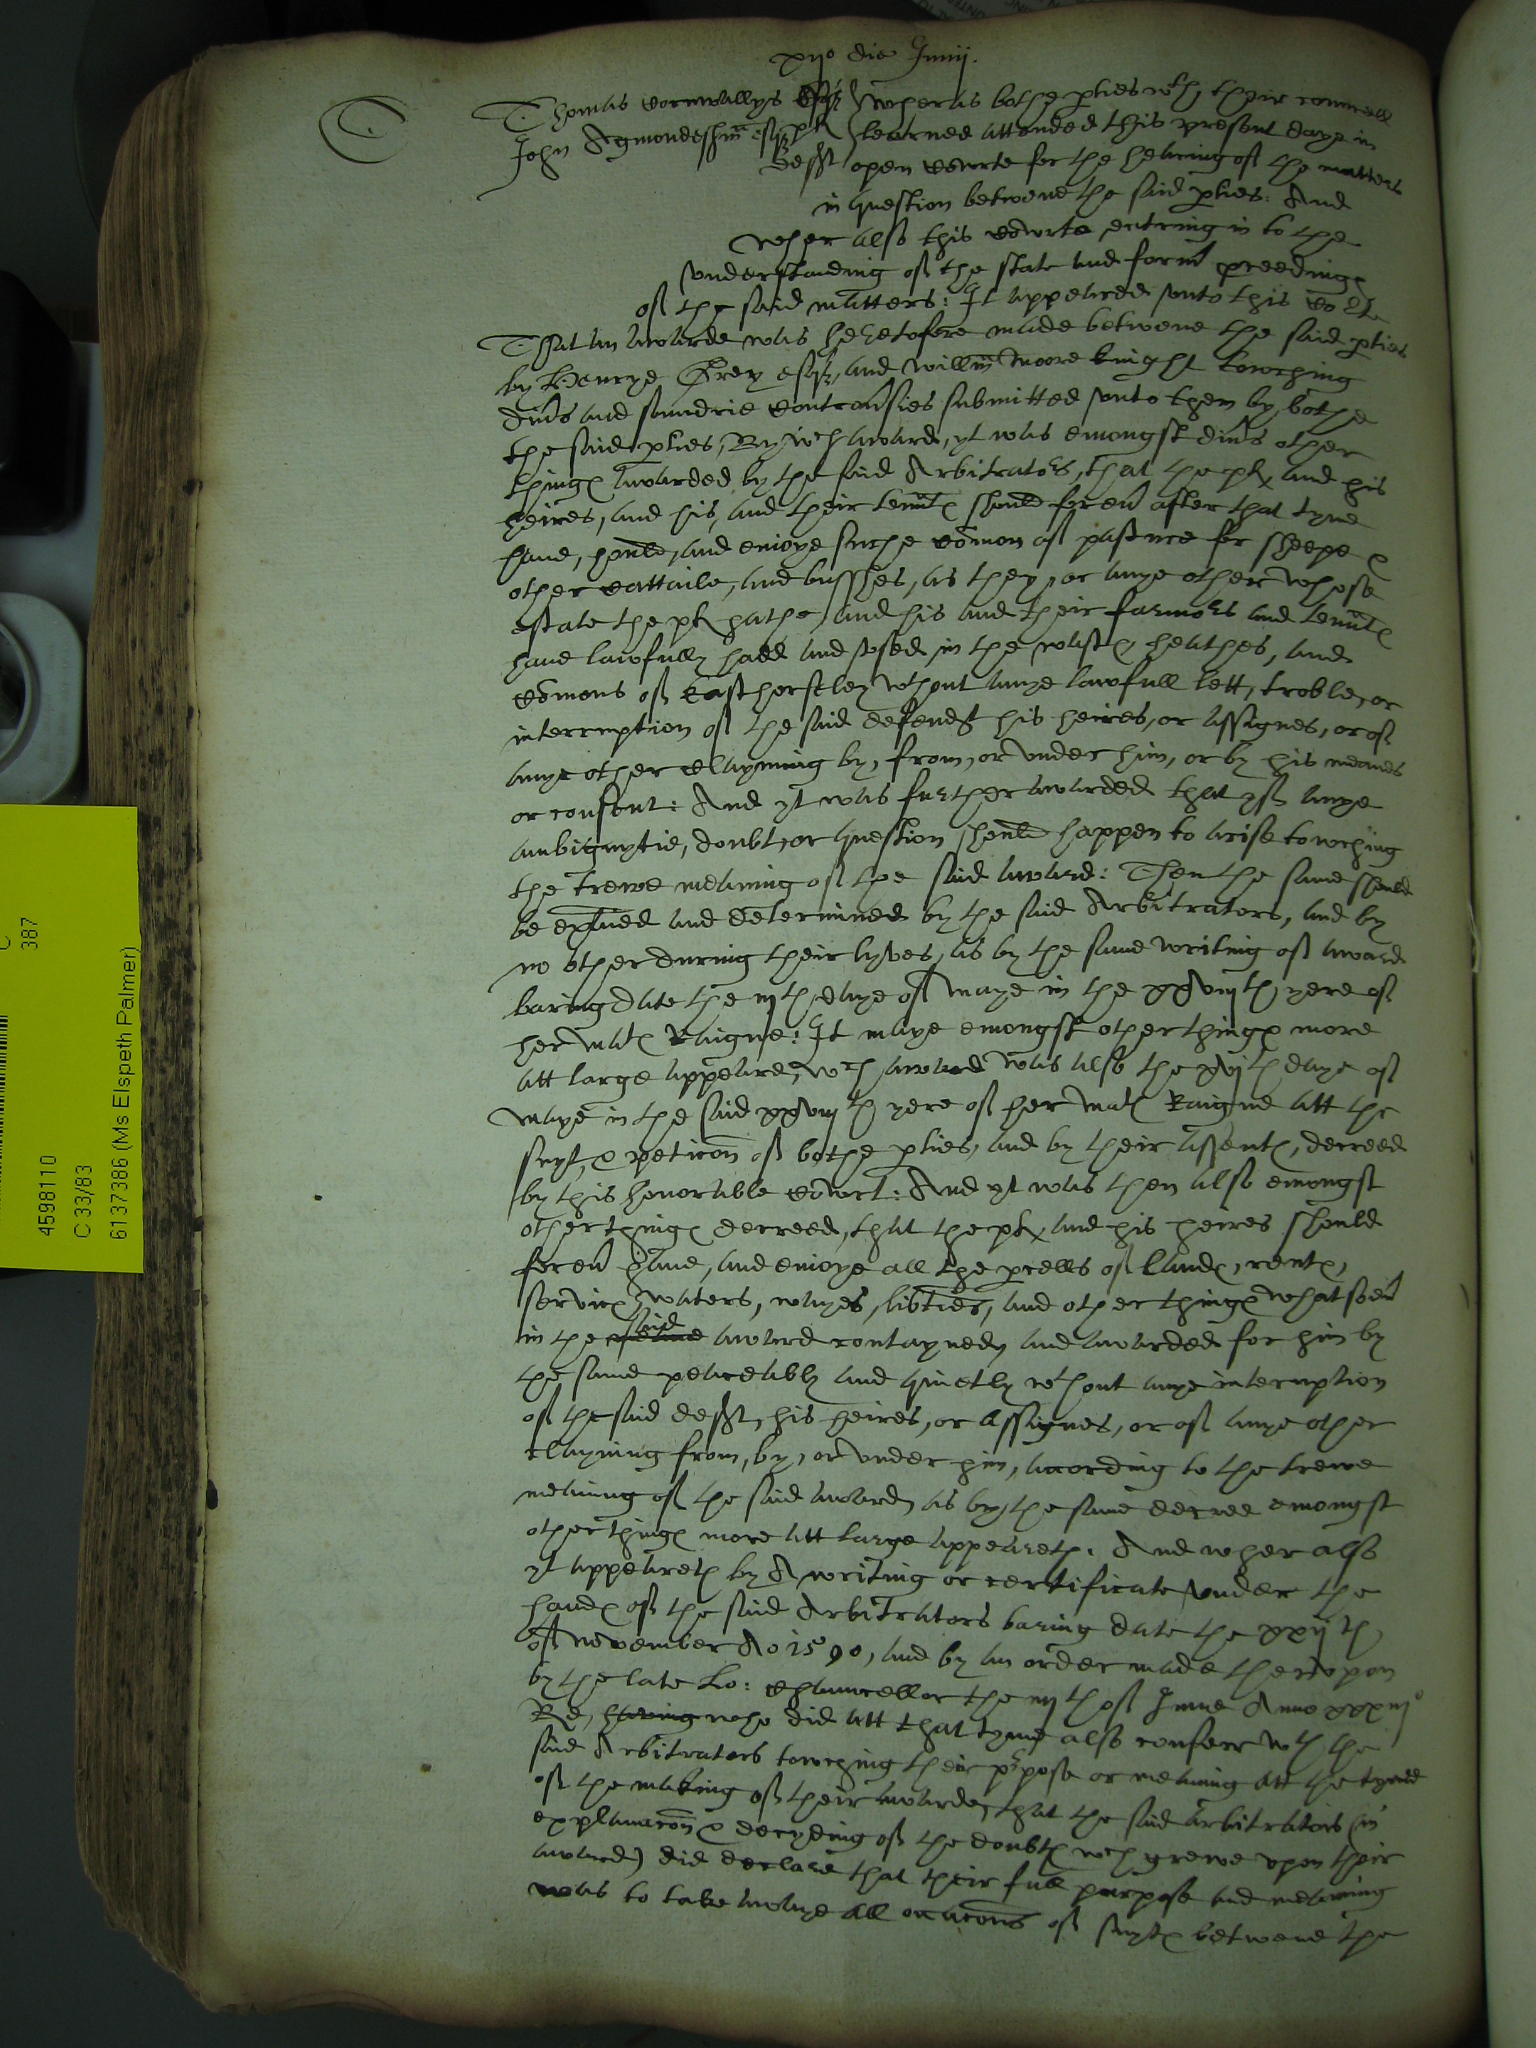 xijo die Junij.
Thomas Cornwallys Esqr plt Wheras bothe pties wth their councell
John Agmondeshm esqr learned attended this present daye in
defft open Cowrte for the hearing of the matters
in question betwene the said pties: And
wher also this Cowrte entring in to the
understanding of the state and form' pceedinge
of the said matters: It appeared unto this Corte
That an awarde was heretofore made betwene the said pties
by Henrye Grey esqr, and Willm Moore knight towching
divs and soundrie Controu'sies submitted unto them by bothe
the said pties, By wch award, yt was emongst divs other
thinge Awarded by the said Arbitrators, that the plt, and his
heires, and his, and their tennte should foreu' after that tyme
have, hould, and enioye suche Comon of pasture for sheepe &
other Cattaile, and busshes, as they, or anye other whose
estate the plt hathe, and his and their farmors and tennte
have lawfully hadd and used, in the waste heathes, and
Comons of Easthorseley wthout anye lawfull lett, troble, or
interruption of the said defendt his heires, or assignes, or of
anye other Clayming by, from, or under him, or by his meanes
or consent: And yt was further awarded that yf anye
ambiguytie, doubt, or question should happen to arise towching
the trewe meaning of the said award: Then the same should
be explaned and determined by the said Arbitrators, and by
no other during their lyves, as by the same writing of award
baring date the iijth daye of Maye in the xxviijth yere of
her Mate Raigne: It maye emongst other thinge more
att large appeare, wch award was also the xvjth daye of
Maye in the said xxviijth yere of her Mate Raigne att the
suyt, & peticon of bothe pties, and by their assente, decreed
by this honorable Cowrt: And yt was then also emongst
other thinge decreed, that the plt, and his heires should
foreu' have, and enioye all the pcells of lande, rente,
service, waters, wayes, libties, and other thinge whatsoeu'
in the said award contayned, and awarded for him by
the same peaceably and quietly wthout anye interuption
of the said defft, his heires, or assignes, or of anye other
clayming from, by, or under him, acording to the trewe
meaning of the said award, as by the same decree emongst
other thinge more att large appeareth. And wher also
yt appeareth by A writing or certificate under the
hande of the said Arbitrators baring date the xxijth
of November Ao 1590, and by an order made therupon
by the late Lo: Chauncellor the iijth of June Anno xxxiijo
Re, having who did att that tyme also conferr wth the
said Arbitrators towching their prpose or meaning att the tyme
of the making of their awarde, that the said arbitrators (in
explanacon & decyding of the doubte wch grewe upon their
award) did declare that their full purpose and meaning
was to take awaye all occacons of suyte betwene the
C
387
4598110
C 33/83
6137386 (Ms Elspeth Palmer)